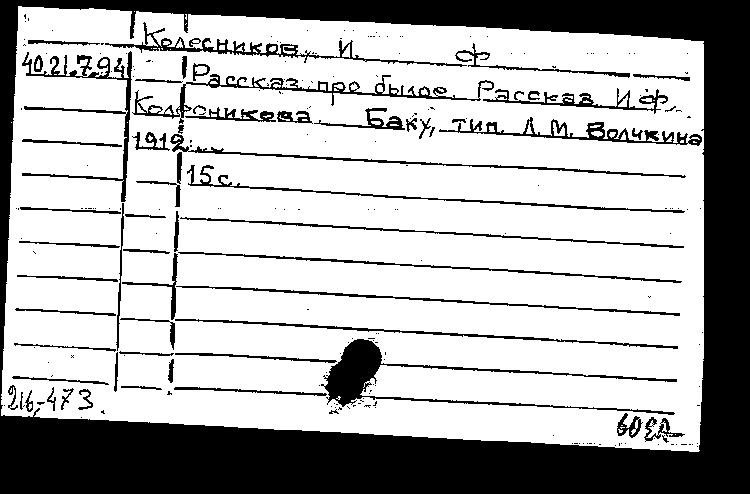 Колесников, И. Ф
40.21.7.94 Рассказ про былое. Рассказ И.Ф.
Колесникова. Баку, тип. А. М. Волчкина
1912.
15 с.
216-473.